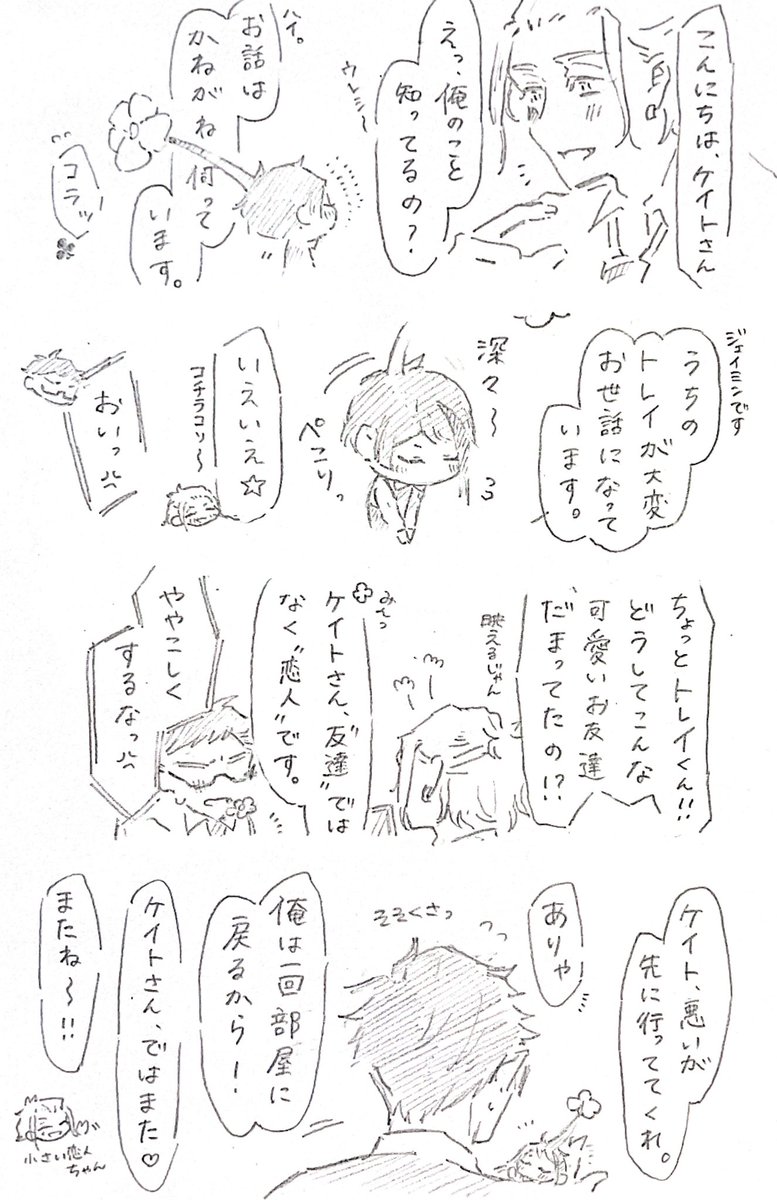 こんにちは、ケイトさん
えっ、俺のこと
知ってるの?
ウレシ〜
ハイ。
お話は
かねがね伺って
います。
コラッ
ジェイミンです
うちの
トレイが大変
お世話になって
います。
深々〜
ぺこりっ
いえいえ☆
コチラコソ〜
おいっ
ちょっとトレイくん!!
どうしてこんな
可愛いお友達
だまってたの!?
映えるじゃん
みてっ
ケイトさん、“友達”では
なく“恋人”です。
ややこしく
するなっ
ケイト、悪いが
先に行っててくれ。
ありゃ
そそくさっ
俺は一回部屋に
戻るから!
ケイトさん、ではまた♡
またね〜!!
小さい恋人
ちゃん